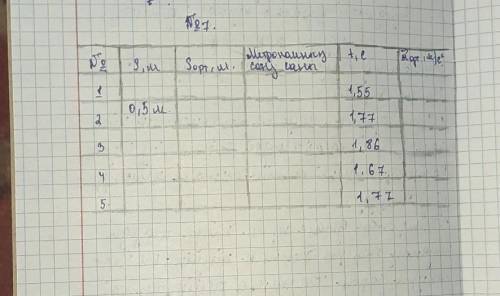 №1.
№ S, м Sорт, м. Метрономның соғу саны t, c aорт, м/c²
1 1,55
0,5 м
2 1,77
3 1,86
4 1,67
5. 1,77